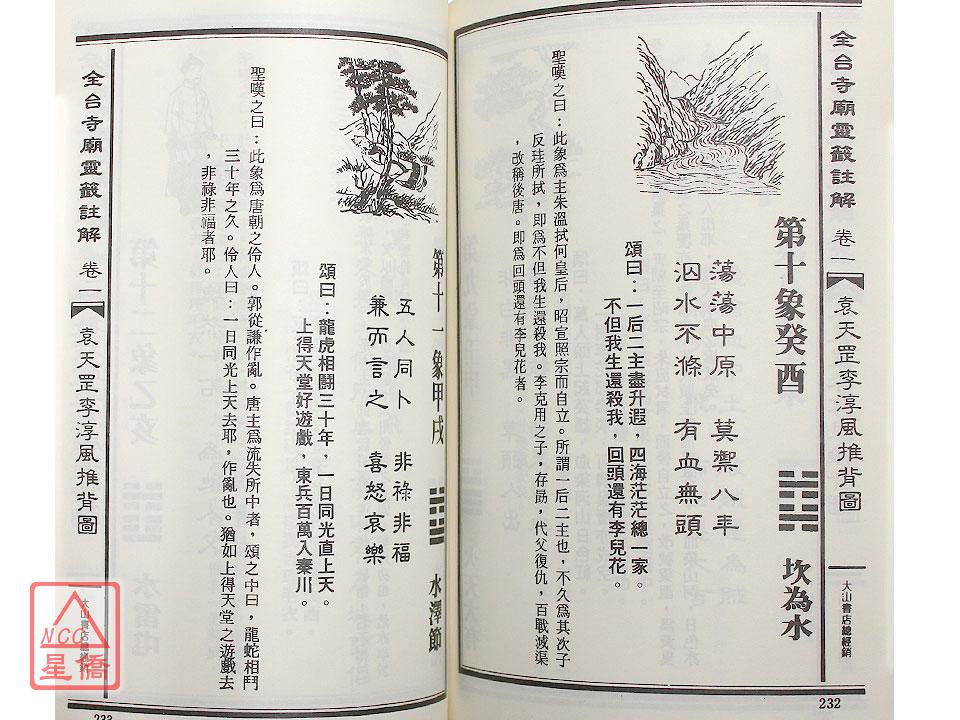 全台寺廟靈籤註解 卷一 袁天罡李淳風推背圖
大山書店總經銷
第十象癸酉 坎為水
蕩蕩中原 莫禦八牟
泅水不滌 有血無頭
頌曰：一后二主盡升遐，四海茫茫總一家。
不但我生還殺我，回頭還有李兒花。
聖嘆之曰：此象爲主朱溫拭何皇后，昭宣照宗而自立。所謂一后二主也，不久爲其次子
反珪所拭，即爲不但我生還殺我。李克用之子，存勗，代父復仇，百戰滅渠
，改稱後唐。即爲回頭還有李兒花者。
232
第十一象甲戌 水澤節
五人同卜 非祿非福
兼而言之 喜怒哀樂
頌曰：龍虎相鬪三十年，一日同光直上天。
上得天堂好遊戲，東兵百萬入秦川。
聖嘆之曰：此象爲唐朝之伶人。郭從謙作亂。唐主爲流失所中者，頌之中曰，龍蛇相鬥
三十年之久。伶人曰：一日同光上天去耶，作亂也。猶如上得天堂之遊戲去
，非祿非福者耶。
全台寺廟靈籤註解 卷一 袁天罡李淳風推背圖
大山書店總經銷
233
NCC
星僑